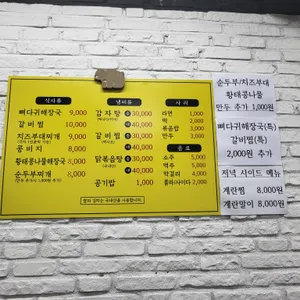 식사류
뼈다귀해장국 9,000
갈비찜 10,000
치즈부대찌개 9,000
콩비지 8,000
황태콩나물해장국 8,000
순두부찌개 8,000
냄비류
감자탕 소 30,000
대 40,000
갈비찜 소 30,000
대 40,000
닭볶음탕 소 30,000
대 40,000
공기밥 1,000
사리
라면 1,000
떡 1,000
볶음밥 3,000
만두 3,000
음료
소주 5,000
맥주 5,000
막걸리 4,000
콜라/사이다 2,000
쌀과 김치는 국내산을 사용합니다.
순두부/치즈부대
황태콩나물
만두 추가 1,000원
뼈다귀해장국(특)
갈비찜(특)
2,000원 추가
저녁 사이드 메뉴
계란찜 8,000원
계란말이 8,000원